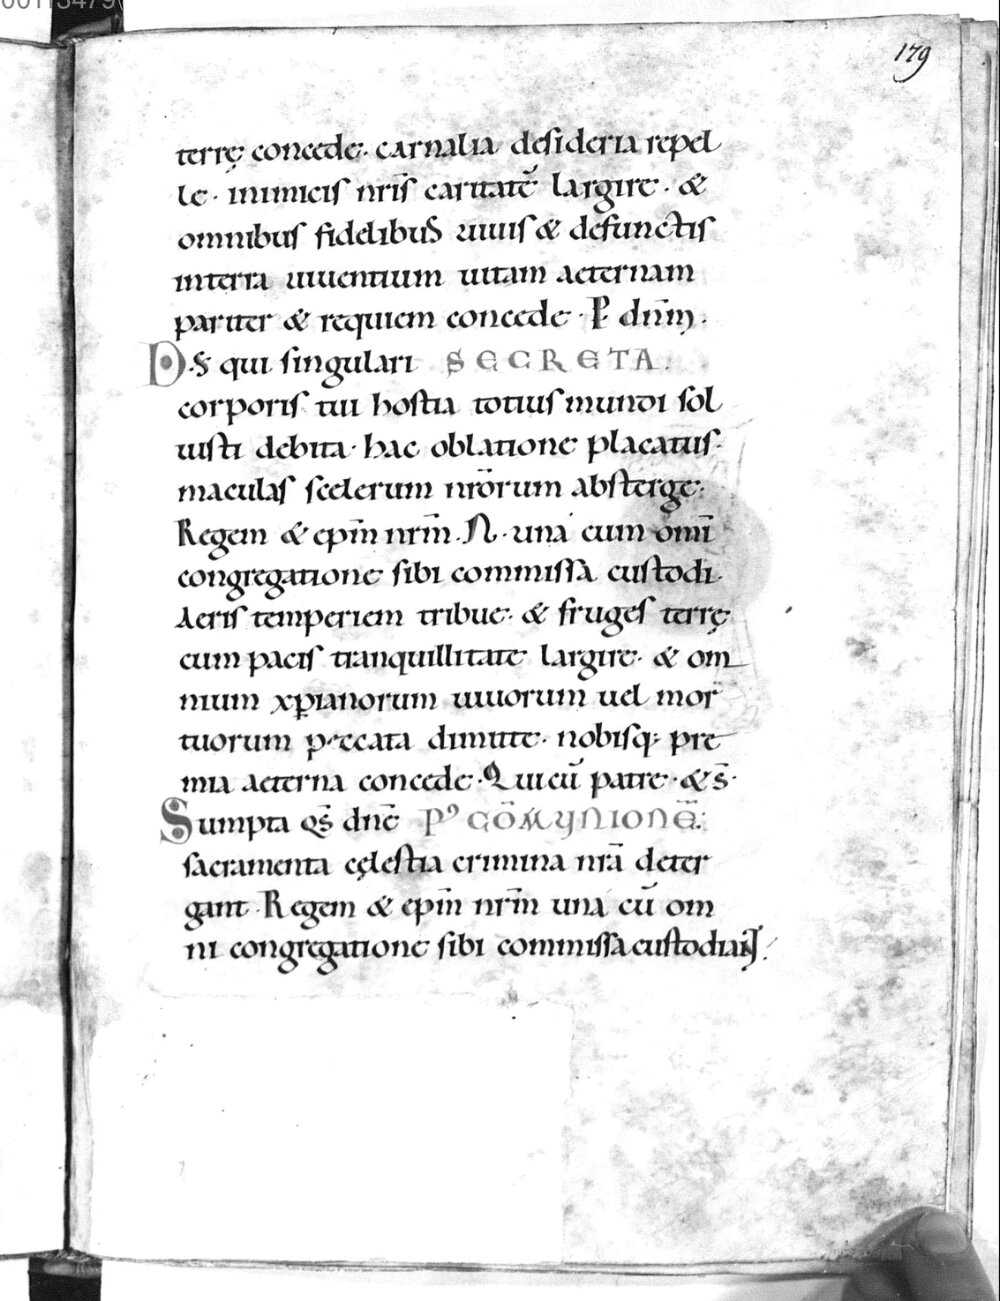 179
terrę concede. carnalia desideria repel
le. inimicis nr̄is caritatē largire. &
omnibus fidelibus uiuis & defunctis
interra uiuentium uitam aeternam
pariter & requiem concede. P dn̄m.
DS qui singulari SECRETA.
corporis tui hostia totius mundi sol
uisti debita. hac oblatione placatus.
maculas scelerum nr̄orum absterge.
Regem & ep̄m nr̄m. N. una cum omī
congregatione sibi commissa custodi.
Aeris temperiem tribue. & fruges terrę
cum pacis tranquillitate largire. & om
nium xp̄ianorum uiuorum uel mor
tuorum peccata dimitte. nobisq; pre
mia aeterna concede. Qui cū patre. & s̄.
Sumpta qs̄ dn̄e P' COM̄VNIONĒ.
sacramenta cęlestia crimina nr̄a deter
gant. Regem & ep̄m nr̄m una cū om
ni congregatione sibi commissa custodian